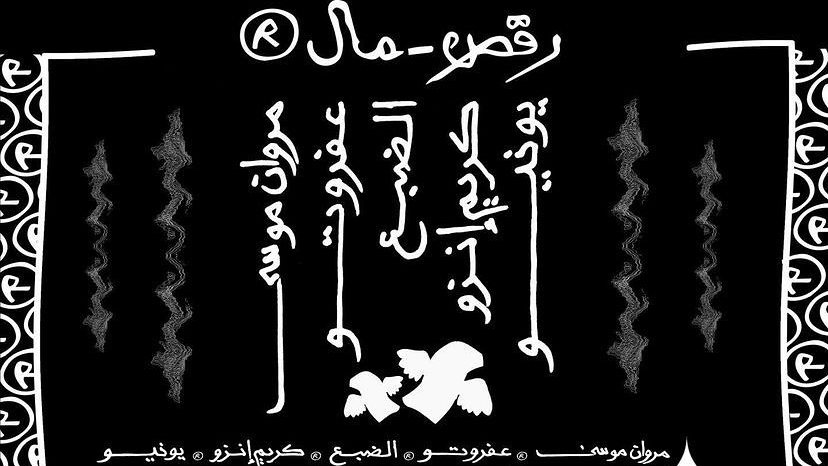 رقص-مال ®
يونيو
كريم إنزو
الضبع
عفروتو
مروان موسى
مروان موسى ® عفروتو ® الضبع ® كريم إنزو ® يونيو